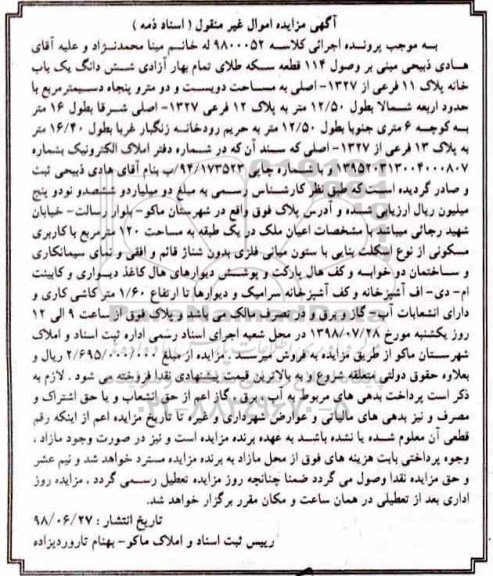 آگهی مزایده اموال غیر منقول ( اسناد ذمه )
به موجب پرونده اجرائی کلاسه ۹۸۰۰۰۵۲ له خانم مینا محمدنژاد و علیه آقای
هادی ذبیحی مبنی بر وصول ۱۱۴ قطعه سکه طلای تمام بهار آزادی شش دانگ یک باب
خانه پلاک ۱۱ فرعی از ۱۳۲۷- اصلی به مساحت دویست و دو مترو پنجاه دسیمترمربع با
حدود اربعه شمالا بطول ۱۲/۵۰ متر به پلاک ۱۲ فرعی ۱۳۲۷- اصلی شرقا بطول ۱۶ متر
به کوچه ۶ متری جنوبا بطول ۱۲/۵۰ متر به حریم رودخانه زنگبار غربا بطول ۱۶/۴۰ متر
به پلاک ۱۳ فرعی از ۱۳۲۷- اصلی که سند آن که در شماره دفتر املاک الکترونیک بشماره
۱۳۹۵۲۰۳۱۳۰۰۴۰۰۰۸۰۷ و با شماره چاپی ۹۴/۱۷۳۵۲۳/ب بنام آقای هادی ذبیحی ثبت
و صادر گردیده است که طبق نظر کارشناس رسمی به مبلغ دو میلیاردو ششصدو نودو پنج
میلیون ریال ارزیابی شده و آدرس پلاک فوق واقع در شهرستان ماکو- بلوار رسالت- خیابان
شهید رجائی میباشد با مشخصات اعیان ملک در یک طبقه به مساحت ۱۲۰ مترمربع با کاربری
مسکونی از نوع اسکلت بنایی با ستون میانی فلزی بدون شناژ قائم و افقی و نمای سیمانکاری
و ساختمان دو خوابه و کف هال پارکت و پوشش دیوارهای هال کاغذ دیواری و کابینت
ام- دی- اف آشپزخانه و کف آشپزخانه سرامیک و دیوارها تا ارتفاع ۱/۶۰ متر کاشی کاری و
دارای انشعابات آب- گاز و برق و در تصرف مالک می باشد و پلاک فوق از ساعت ۹ الی ۱۲
روز یکشنبه مورخ ۱۳۹۸/۰۷/۲۸ در محل شعبه اجرای اسناد رسمی اداره ثبت اسناد و املاک
شهرستان ماکو از طریق مزایده به فروش میرسد . مزایده از مبلغ ۲/۶۹۵/۰۰۰/۰۰۰ ریال و
بعلاوه حقوق دولتی متعلقه شروع و به بالاترین قیمت پیشنهادی نقدا فروخته می شود . لازم به
ذکر است پرداخت بدهی های مربوط به آب ، برق ، گاز اعم از حق انشعاب و یا حق اشتراک و
مصرف و نیز بدهی های مالیاتی و عوارض شهرداری و غیره تا تاریخ مزایده اعم از اینکه رقم
قطعی آن معلوم شده یا نشده باشد به عهده برنده مزایده است و نیز در صورت وجود مازاد ،
وجوه پرداختی بابت هزینه های فوق از محل مازاد به برنده مزایده مسترد خواهد شد و نیم عشر
و حق مزایده نقدا وصول می گردد ضمنا چنانچه روز مزایده تعطیل رسمی گردد ، مزایده روز
اداری بعد از تعطیلی در همان ساعت و مکان مقرر برگزار خواهد شد.
تاریخ انتشار : ۹۸/۰۶/۲۷
رییس ثبت اسناد و املاک ماکو- بهنام تاروردیزاده